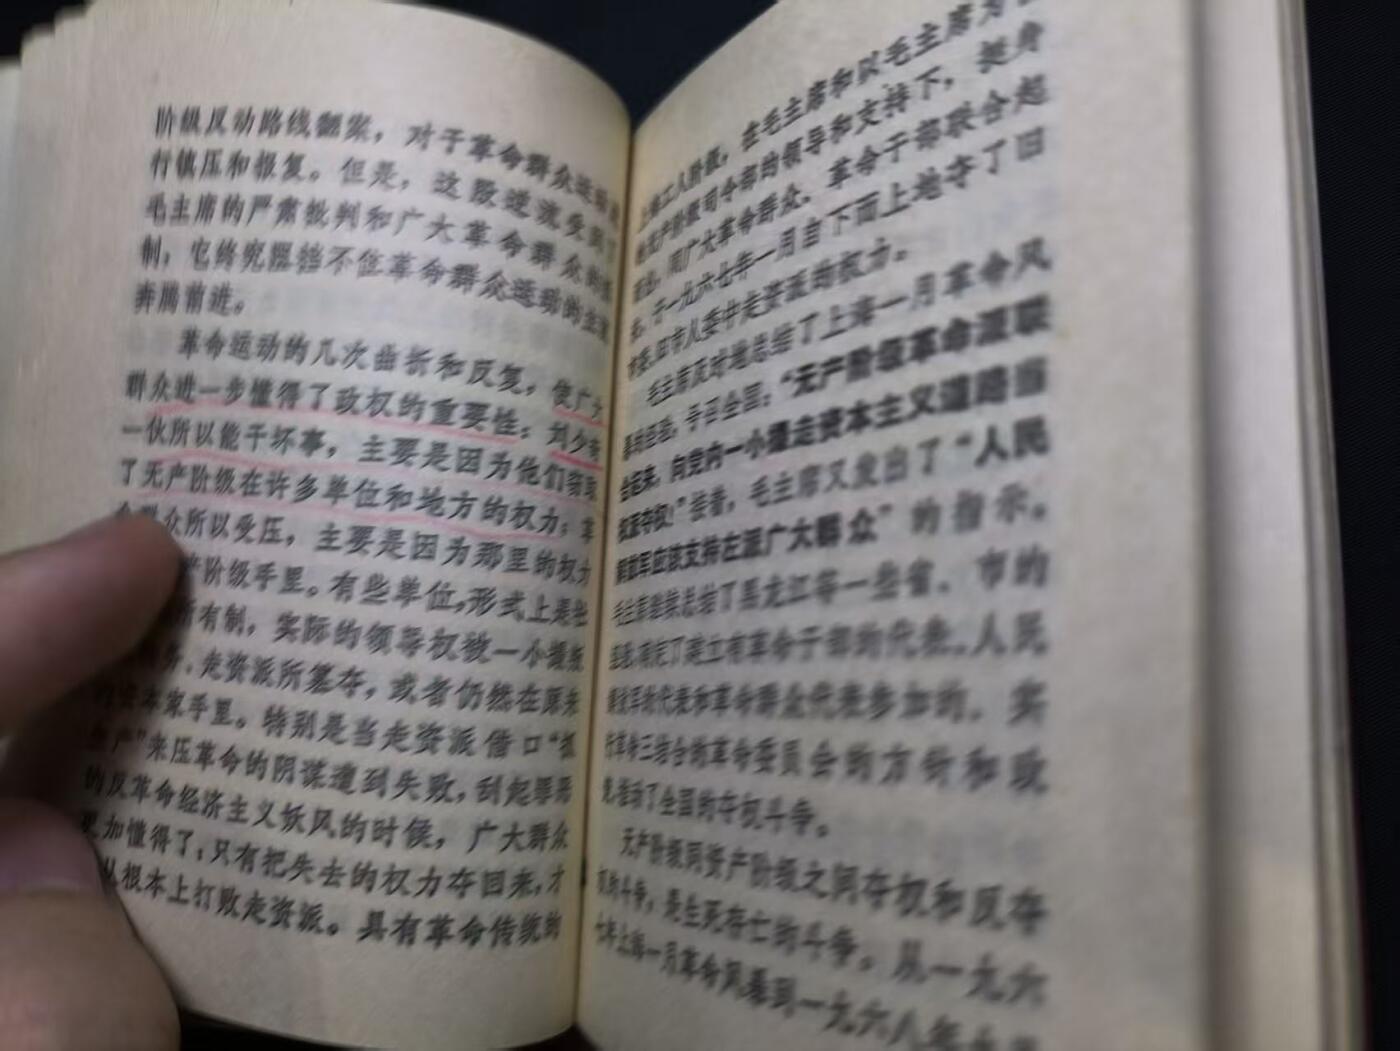 阶级反动路线翻案，对于革命群众进
行镇压和报复。但是，这股逆流受到了
毛主席的严肃批判和广大革命群众的抵
制，它终究阻挡不住革命群众运动的
奔腾前进。
革命运动的几次曲折和反复，使广大
群众进一步懂得了政权的重要性：刘少奇
一伙所以能干坏事，主要是因为他们窃取
了无产阶级在许多单位和地方的权力；革
命群众所以受压，主要是因为那里的权力
产阶级手里。有些单位，形式上是社
所有制，实际的领导权被一小撮叛
务、走资派所篡夺，或者仍然在原来
的资本家手里。特别是当走资派借口“抓
生产”来压革命的阴谋遭到失败，刮起罪恶
的反革命经济主义妖风的时候，广大群众
更加懂得了，只有把失去的权力夺回来，才
从根本上打败走资派。具有革命传统的
上海工人阶级，在毛主席和以毛主席为首
的无产阶级司令部的领导和支持下，挺身
而出，同广大革命群众、革命干部联合起
来，于一九六七年一月自下而上地夺了旧
市委、旧市人委中走资派的权力。
毛主席及时地总结了上海一月革命风
暴的经验，号召全国：“无产阶级革命派联
合起来，向党内一小撮走资本主义道路当
权派夺权！”接着，毛主席又发出了“人民
解放军应该支持左派广大群众”的指示。
毛主席继续总结了黑龙江等一些省、市的
经验，确定了建立有革命干部的代表、人民
解放军的代表和革命群众代表参加的、实
行革命三结合的革命委员会的方针和政
策，推动了全国的夺权斗争。
无产阶级同资产阶级之间夺权和反夺
权的斗争，是生死存亡的斗争。从一九六
七年上海一月革命风暴到一九六八年